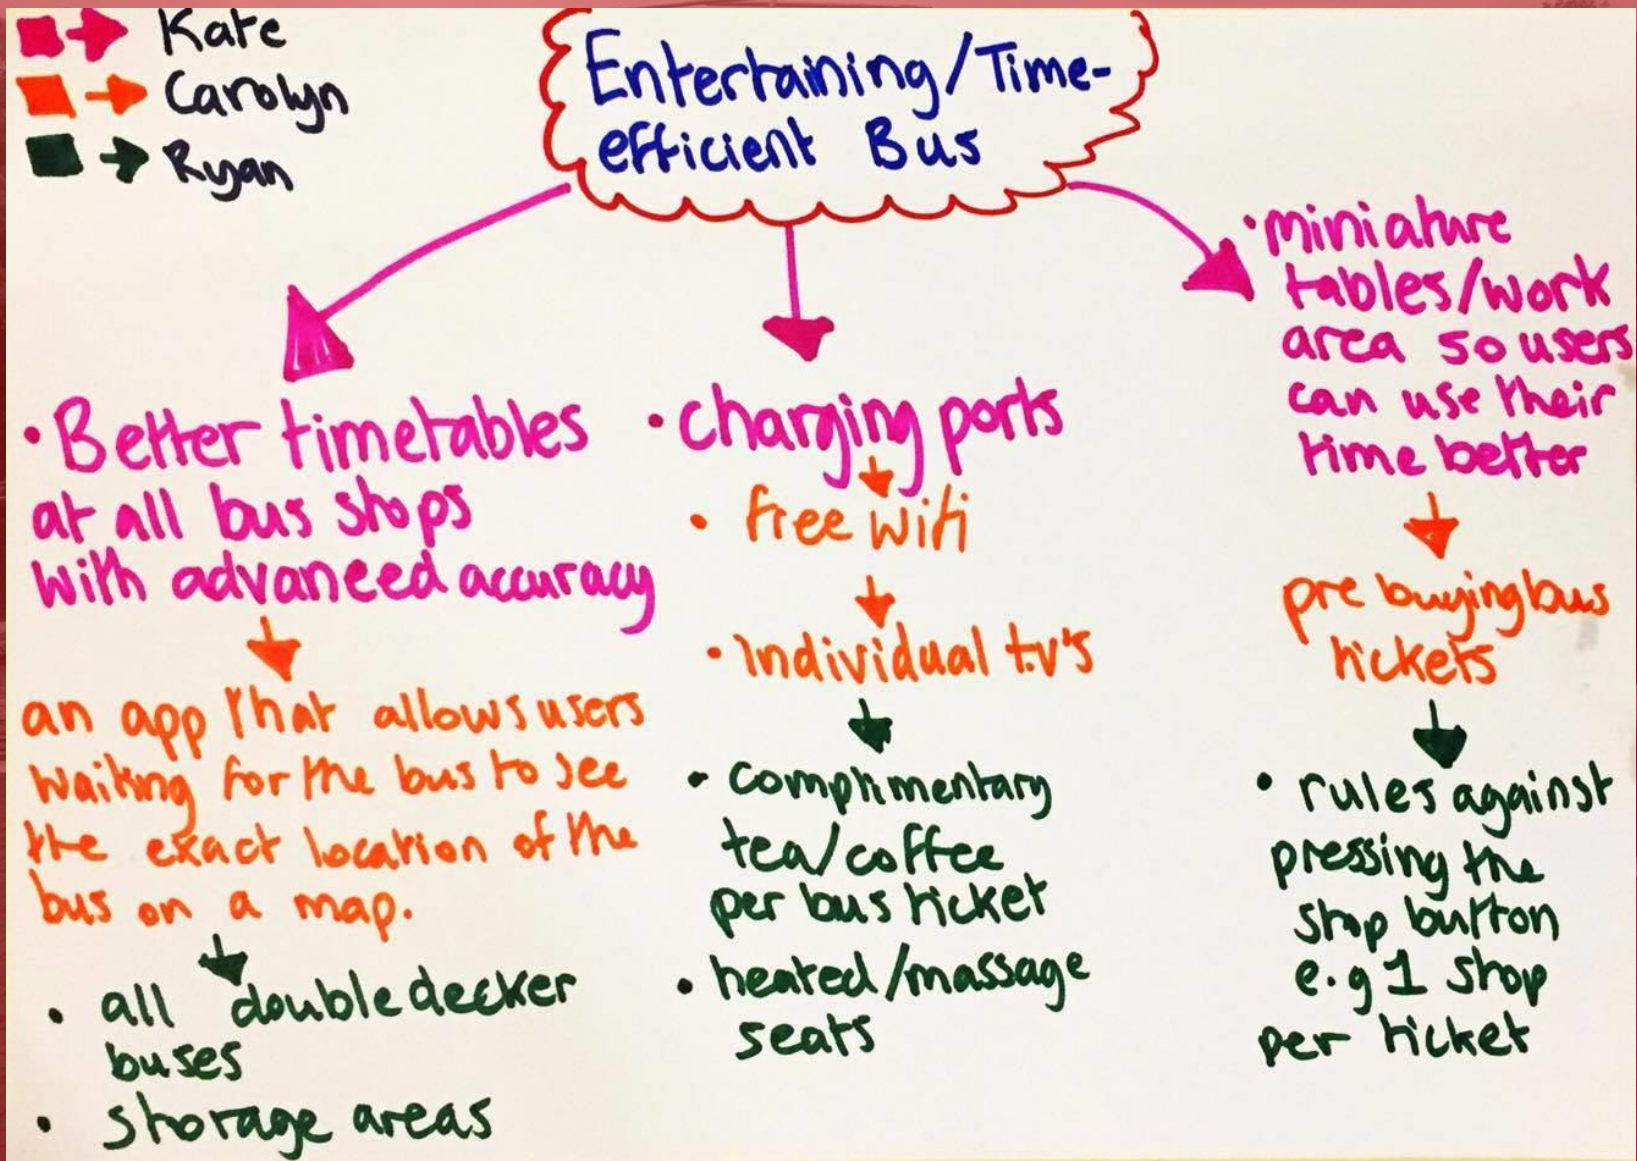 Kate
Carolyn
Ryan
Entertaining/Time-
efficient Bus
• Better timetables
at all bus stops
with advanced accuracy
an app that allows users
waiting for the bus to see
the exact location of the
bus on a map.
• all double decker
buses
• storage areas
• charging ports
• free wifi
• individual t.v's
• complimentary
tea/coffee
per bus ticket
• heated/massage
seats
• miniature
tables/work
area so users
can use their
time better
pre buying bus
tickets
• rules against
pressing the
stop button
e.g 1 stop
per ticket